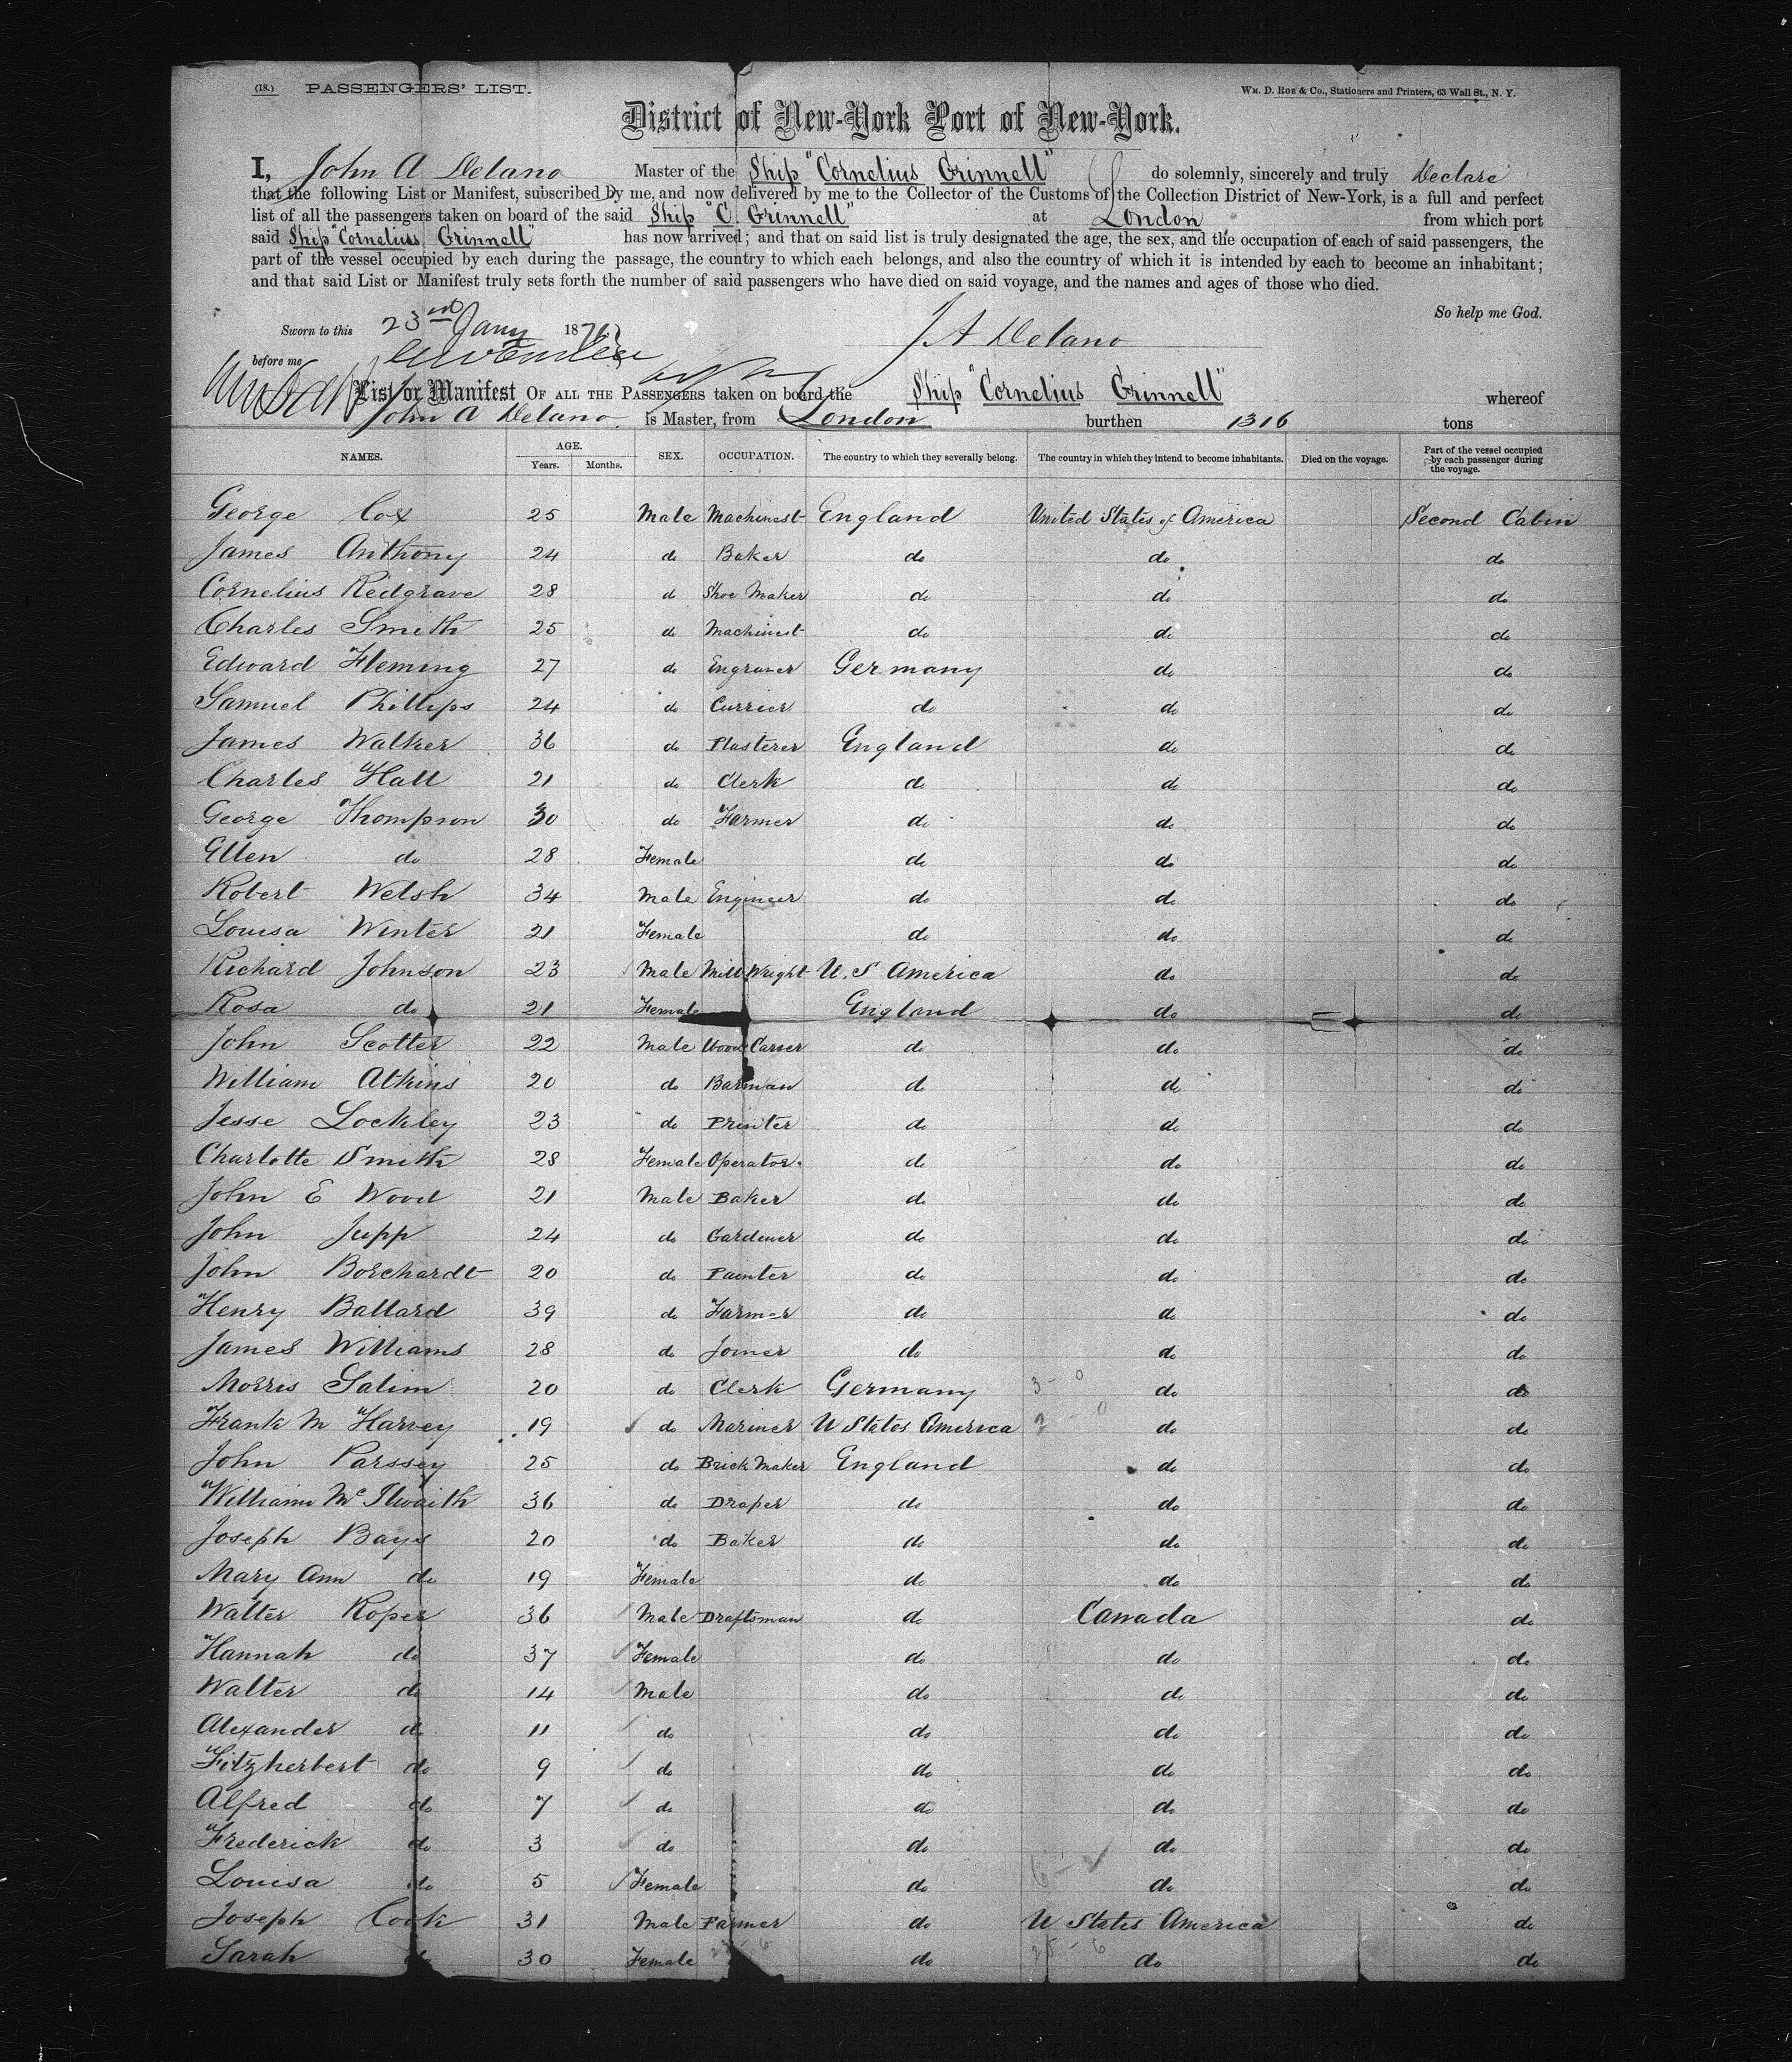 (18.) PASSENGERS' LIST. WM. D. ROE & CO., Stationers and Printers, 63 Wall St., N. Y.
District of New-York Port of New-York.
I, John A Delano Master of the Ship "Cornelius Grinnell" do solemnly, sincerely and truly Declare
that the following List or Manifest, subscribed by me, and now delivered by me to the Collector of the Customs of the Collection District of New-York, is a full and perfect
list of all the passengers taken on board of the said Ship "C. Grinnell" at London from which port
said Ship "Cornelius Grinnell" has now arrived; and that on said list is truly designated the age, the sex, and the occupation of each of said passengers, the
part of the vessel occupied by each during the passage, the country to which each belongs, and also the country of which it is intended by each to become an inhabitant;
and that said List or Manifest truly sets forth the number of said passengers who have died on said voyage, and the names and ages of those who died.
So help me God.
Sworn to this 23rd Jany 187
J A Delano
before me
List or Manifest OF ALL THE PASSENGERS taken on board the Ship "Cornelius Grinnell" whereof
John A Delano is Master, from London burthen 1316 tons
NAMES. AGE. Years. Months. SEX. OCCUPATION. The country to which they severally belong. The country in which they intend to become inhabitants. Died on the voyage. Part of the vessel occupied by each passenger during the voyage.
George Cox 25 Male Machinest England United States of America Second Cabin
James Anthony 24 do Baker do do do
Cornelius Redgrave 28 do Shoe Maker do do do
Charles Smith 25 do Machinest do do do
Edward Fleming 27 do Engraver Germany do do
Samuel Phillips 24 do Currier do do do
James Walker 36 do Plasterer England do do
Charles Hall 21 do Clerk do do do
George Thompson 30 do Farmer do do do
Ellen do 28 Female do do do
Robert Welsh 34 Male Engineer do do do
Louisa Winter 21 Female do do do
Richard Johnson 23 Male Mill Wright U. S America do do
Rosa do 21 Female England do do
John Scotter 22 Male Wood Carver do do do
William Atkins 20 do Barman do do do
Jesse Lockley 23 do Printer do do do
Charlotte Smith 28 Female Operator do do do
John E Wood 21 Male Baker do do do
John Jupp 24 do Gardener do do do
John Borchardt 20 do Painter do do do
Henry Ballard 39 do Farmer do do do
James Williams 28 do Joiner do do do
Morris Salim 20 do Clerk Germany do do
Frank M Harvey 19 do Mariner U States America do do
John Parssey 25 do Brick Maker England do do
William McIlwaith 36 do Draper do do do
Joseph Bays 20 do Baker do do do
Mary Ann do 19 Female do do do
Walter Roper 36 Male Draftsman do Canada do
Hannah do 37 Female do do do
Walter do 14 Male do do do
Alexander do 11 do do do do
Fitzherbert do 9 do do do do
Alfred do 7 do do do do
Frederick do 3 do do do do
Louisa do 5 Female do do do
Joseph Cook 31 Male Farmer do U States America do
Sarah do 30 Female do do do